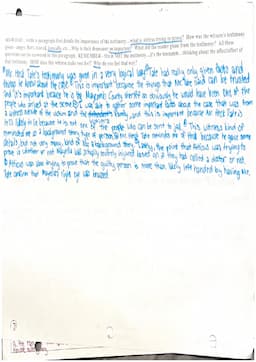 paragraph that details the importance of the testimony... what is Atticus trying to prove? How was the witness's testimony
given - angry, hurt, scared, logically, etc... Why is their demeanor so important? What did the reader glean from the testimony? All these
questions can be answered in the paragraph. REMEMBER - this is NOT the testimony... it's the
testimony. HOW does the witness make you feel? Why do you feel that way?
Mr. Heck Tate's testimony was given in a very logical way. Tate had really only given facts and
things he knew about the case. This is important because the things that Mr. Tate said can be trusted
and it's important because he is the Maycomb County sheriff so obviously he would have been one of the
people who arrived at the scene. I was able to gather some important facts about the case that was from
a witness outside of the victim and the family, and this is important because Mr. Heck Tate is
less likely to lie because he is not one of the people who can be sent to jail. This witness kind of
reminded me as a background story type of person to me. Heck Tate reminded me of that because he gave some
details, but not very many, kind of like a background story. Lastly, the point that Atticus was trying to
prove is whether or not Mayella was actually injured based on if they had called a doctor or not.
Atticus was also trying to prove that the guilty person is more than likely left handed by having Mr.
Tate confirm that Mayella's right eye was bruised.